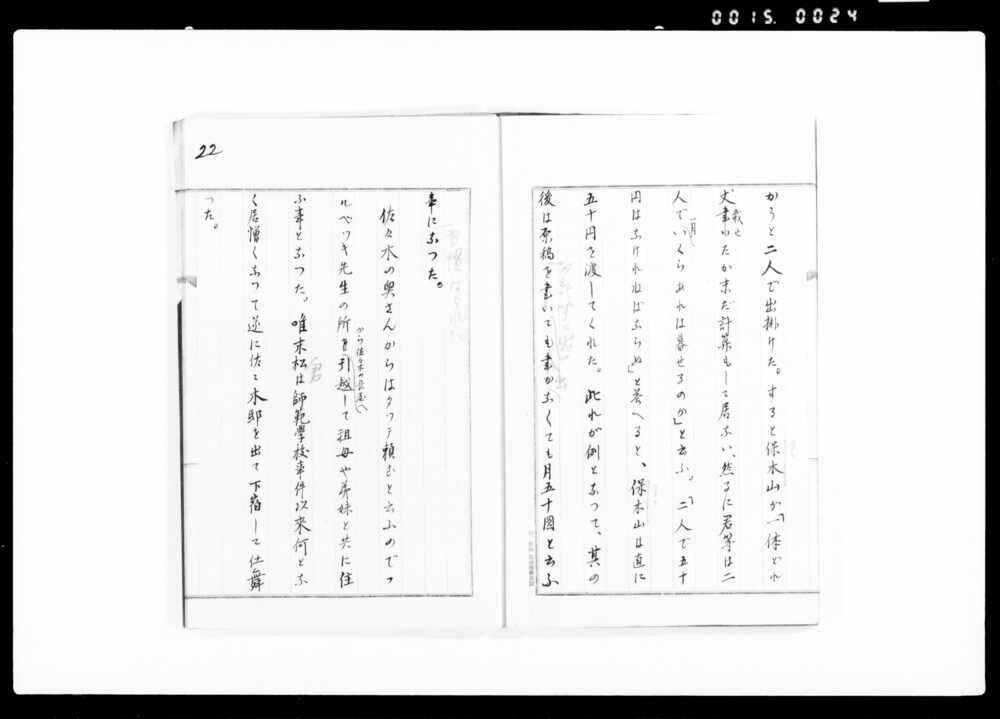 0015. 0024
かうと二人で出掛けた。すると保木山が「一体どれ
丈書いたか未だ計算もして居ない、然るに君等は二
載せ
人でいくらあれは暮せるのか」と云ふ。「二人で五十
一月
円はなけれればならぬ」と答へると、保木山は直に
五十円を渡してくれた。此れが例となつて、其の
後は原稿を書いても書かなくても月五十圓と云ふ
22
事になつた。
佐々木の奥さんからはタッテ頼むと云ふのでつ
ルベツキ先生の所を引越して祖母や弟妹と共に住
から佐々木の長屋へ
ふ事となつた。唯末松は師範學校事件以來何とな
く居憎くなつて遂に佐々木邸を出て下宿して仕舞
つた。